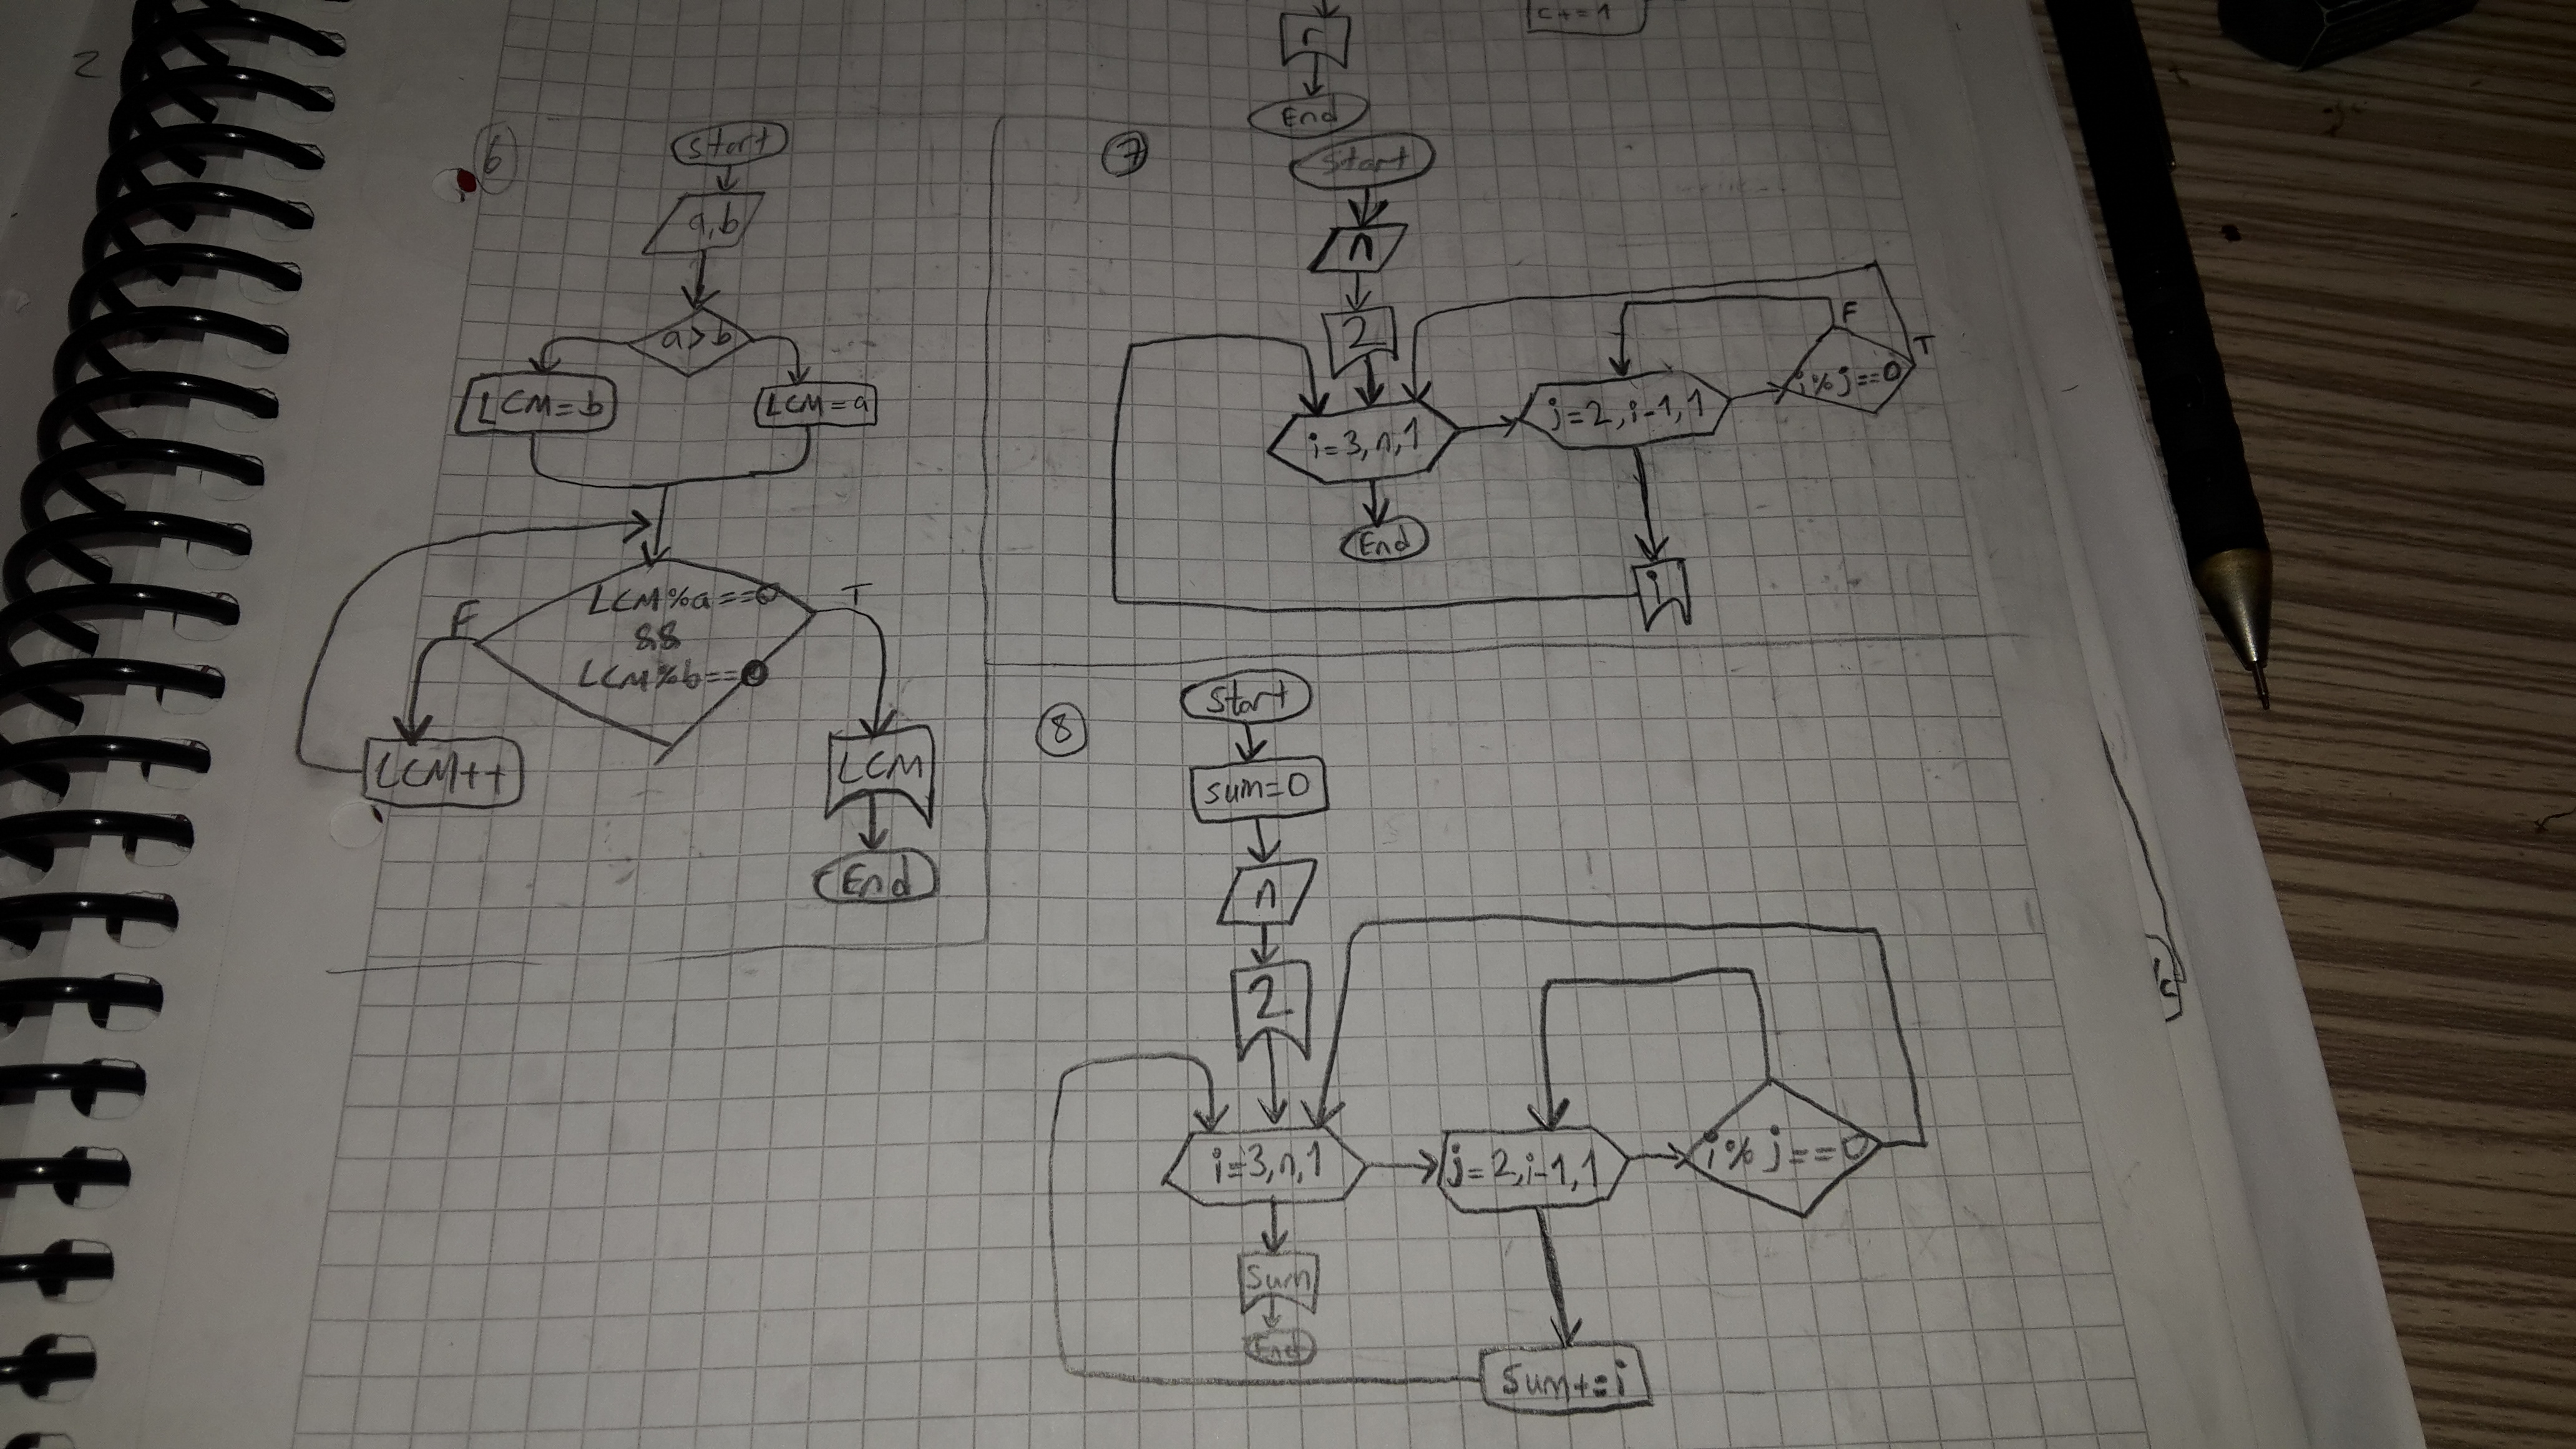 2
c+=1
n
End
6
Start
a,b
a>b
LCM=b
LCM=a
LCM%a==0
&&
LCM%b==0
F
T
LCM++
LCM
End
7
Start
n
2
i=3,n,1
j=2,i-1,1
i%j==0
F
T
End
i
8
Start
sum=0
n
2
i=3,n,1
j=2,i-1,1
i%j==0
Sum
End
Sum+=i